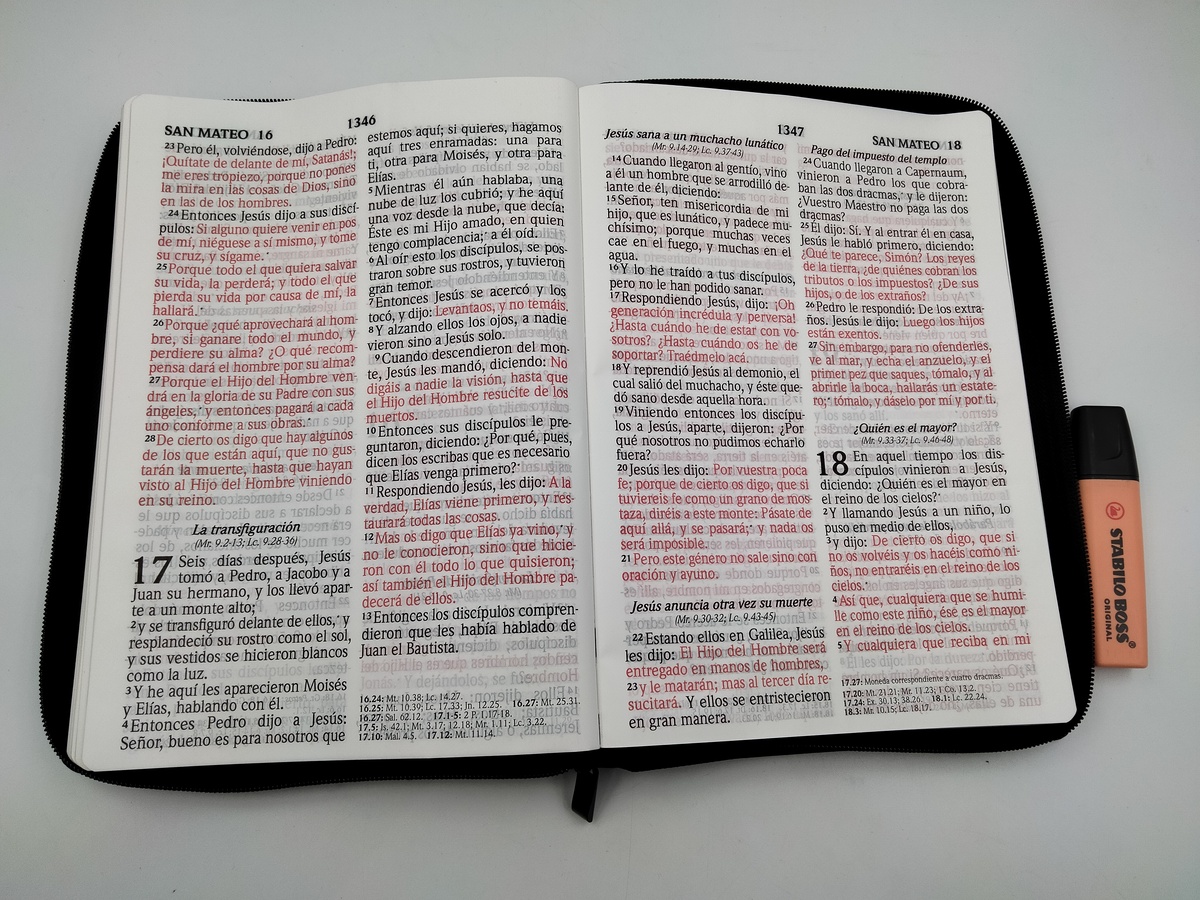 1346
SAN MATEO 16
23 Pero él, volviéndose, dijo a Pedro:
¡Quítate de delante de mí, Satanás!;
me eres tropiezo, porque no pones
la mira en las cosas de Dios, sino
en las de los hombres.
24 Entonces Jesús dijo a sus discí-
pulos: Si alguno quiere venir en pos
de mí, niéguese a sí mismo, y tome
su cruz, y sígame.
25 Porque todo el que quiera salvar
su vida, la perderá; y todo el que
pierda su vida por causa de mí, la
hallará.
26 Porque ¿qué aprovechará al hom-
bre, si ganare todo el mundo, y
perdiere su alma? ¿O qué recom-
pensa dará el hombre por su alma?
27 Porque el Hijo del Hombre ven-
drá en la gloria de su Padre con sus
ángeles, y entonces pagará a cada
uno conforme a sus obras.
28 De cierto os digo que hay algunos
de los que están aquí, que no gus-
tarán la muerte, hasta que hayan
visto al Hijo del Hombre viniendo
en su reino.
La transfiguración
(Mr. 9.2-13; Lc. 9.28-36)
17 Seis días después, Jesús
tomó a Pedro, a Jacobo y a
Juan su hermano, y los llevó apar-
te a un monte alto;
2 y se transfiguró delante de ellos, y
resplandeció su rostro como el sol,
y sus vestidos se hicieron blancos
como la luz.
3 Y he aquí les aparecieron Moisés
y Elías, hablando con él.
4 Entonces Pedro dijo a Jesús:
Señor, bueno es para nosotros que
estemos aquí; si quieres, hagamos
aquí tres enramadas: una para
ti, otra para Moisés, y otra para
Elías.
5 Mientras él aún hablaba, una
nube de luz los cubrió; y he aquí
una voz desde la nube, que decía:
Éste es mi Hijo amado, en quien
tengo complacencia; a él oíd.
6 Al oír esto los discípulos, se pos-
traron sobre sus rostros, y tuvieron
gran temor.
7 Entonces Jesús se acercó y los
tocó, y dijo: Levantaos, y no temáis.
8 Y alzando ellos los ojos, a nadie
vieron sino a Jesús solo.
9 Cuando descendieron del mon-
te, Jesús les mandó, diciendo: No
digáis a nadie la visión, hasta que
el Hijo del Hombre resucite de los
muertos.
10 Entonces sus discípulos le pre-
guntaron, diciendo: ¿Por qué, pues,
dicen los escribas que es necesario
que Elías venga primero?
11 Respondiendo Jesús, les dijo: A la
verdad, Elías viene primero, y res-
taurará todas las cosas.
12 Mas os digo que Elías ya vino, y
no le conocieron, sino que hicie-
ron con él todo lo que quisieron;
así también el Hijo del Hombre pa-
decerá de ellos.
13 Entonces los discípulos compren-
dieron que les había hablado de
Juan el Bautista.
16.24: Mt. 10.38; Lc. 14.27.
16.25: Mt. 10.39; Lc. 17.33; Jn. 12.25. 16.27: Mt. 25.31.
16.27: Sal. 62.12. 17.1-5: 2 P. 1.17-18.
17.5: Is. 42.1; Mt. 3.17; 12.18; Mr. 1.11; Lc. 3.22.
17.10: Mal. 4.5. 17.12: Mt. 11.14.
1347
SAN MATEO 18
Jesús sana a un muchacho lunático
(Mr. 9.14-29; Lc. 9.37-43)
14 Cuando llegaron al gentío, vino
a él un hombre que se arrodilló de-
lante de él, diciendo:
15 Señor, ten misericordia de mi
hijo, que es lunático, y padece mu-
chísimo; porque muchas veces
cae en el fuego, y muchas en el
agua.
16 Y lo he traído a tus discípulos,
pero no le han podido sanar.
17 Respondiendo Jesús, dijo: ¡Oh
generación incrédula y perversa!
¿Hasta cuándo he de estar con vo-
sotros? ¿Hasta cuándo os he de
soportar? Traédmelo acá.
18 Y reprendió Jesús al demonio, el
cual salió del muchacho, y éste que-
dó sano desde aquella hora.
19 Viniendo entonces los discípu-
los a Jesús, aparte, dijeron: ¿Por
qué nosotros no pudimos echarlo
fuera?
20 Jesús les dijo: Por vuestra poca
fe; porque de cierto os digo, que si
tuviereis fe como un grano de mos-
taza, diréis a este monte: Pásate de
aquí allá, y se pasará; y nada os
será imposible.
21 Pero este género no sale sino con
oración y ayuno.
Jesús anuncia otra vez su muerte
(Mr. 9.30-32; Lc. 9.43-45)
22 Estando ellos en Galilea, Jesús
les dijo: El Hijo del Hombre será
entregado en manos de hombres,
23 y le matarán; mas al tercer día re-
sucitará. Y ellos se entristecieron
en gran manera.
Pago del impuesto del templo
24 Cuando llegaron a Capernaum,
vinieron a Pedro los que cobra-
ban las dracmas, y le dijeron:
¿Vuestro Maestro no paga las dos
dracmas?
25 Él dijo: Sí. Y al entrar él en casa,
Jesús le habló primero, diciendo:
¿Qué te parece, Simón? Los reyes
de la tierra, ¿de quiénes cobran los
tributos o los impuestos? ¿De sus
hijos, o de los extraños?
26 Pedro le respondió: De los extra-
ños. Jesús le dijo: Luego los hijos
están exentos.
27 Sin embargo, para no ofenderles,
ve al mar, y echa el anzuelo, y el
primer pez que saques, tómalo, y al
abrirle la boca, hallarás un estate-
ro; tómalo, y dáselo por mí y por ti.
¿Quién es el mayor?
(Mr. 9.33-37; Lc. 9.46-48)
18 En aquel tiempo los dis-
cípulos vinieron a Jesús,
diciendo: ¿Quién es el mayor en
el reino de los cielos?
2 Y llamando Jesús a un niño, lo
puso en medio de ellos,
3 y dijo: De cierto os digo, que si
no os volvéis y os hacéis como ni-
ños, no entraréis en el reino de los
cielos.
4 Así que, cualquiera que se humi-
lle como este niño, ése es el mayor
en el reino de los cielos.
5 Y cualquiera que reciba en mi
17.27: Moneda correspondiente a cuatro dracmas.
17.20: Mt. 21.21; Mr. 11.23; 1 Co. 13.2.
17.24: Ex. 30.13; 38.26. 18.1: Lc. 22.24.
18.3: Mr. 10.15; Lc. 18.17.
STABILO BOSS
ORIGINAL